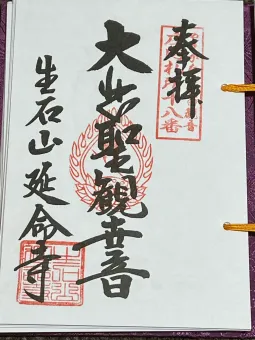 奉拝
大悲聖観世音
生石山延命寺